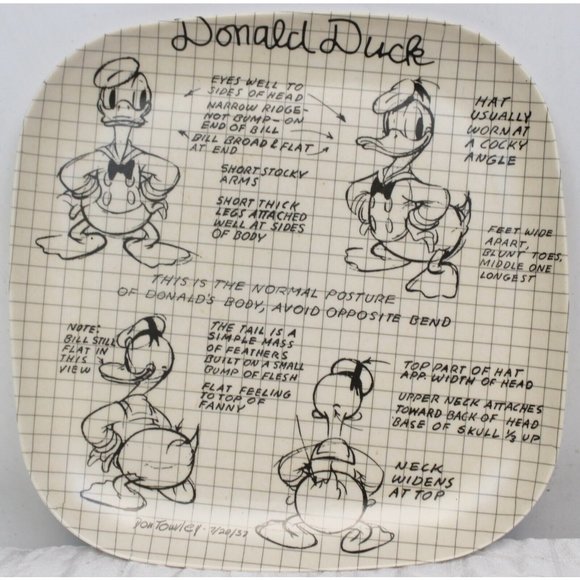 Donald Duck
EYES WELL TO
SIDES OF HEAD
NARROW RIDGE-
NOT BUMP-ON
END OF BILL
BILL BROAD & FLAT
AT END
SHORT STOCKY
ARMS
SHORT THICK
LEGS ATTACHED
WELL AT SIDES
OF BODY
HAT
USUALLY
WORN AT
A COCKY
ANGLE
FEET WIDE
APART,
BLUNT TOES,
MIDDLE ONE
LONGEST
THIS IS THE NORMAL POSTURE
OF DONALD'S BODY, AVOID OPPOSITE BEND
NOTE:
BILL STILL
FLAT IN
THIS
VIEW
THE TAIL IS A
SIMPLE MASS
OF FEATHERS
BUILT ON A SMALL
BUMP OF FLESH
FLAT FEELING
TO TOP OF
FANNY
TOP PART OF HAT
APP. WIDTH OF HEAD
UPPER NECK ATTACHES
TOWARD BACK OF HEAD
BASE OF SKULL ⅓ UP
NECK
WIDENS
AT TOP
Don Towsley - 7/20/37